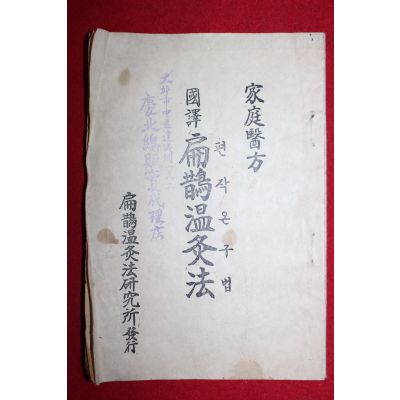 家庭醫方
國譯 扁鵲温灸法
편작온구법
慶北總販賣代理店
扁鵲温灸法研究所 發行